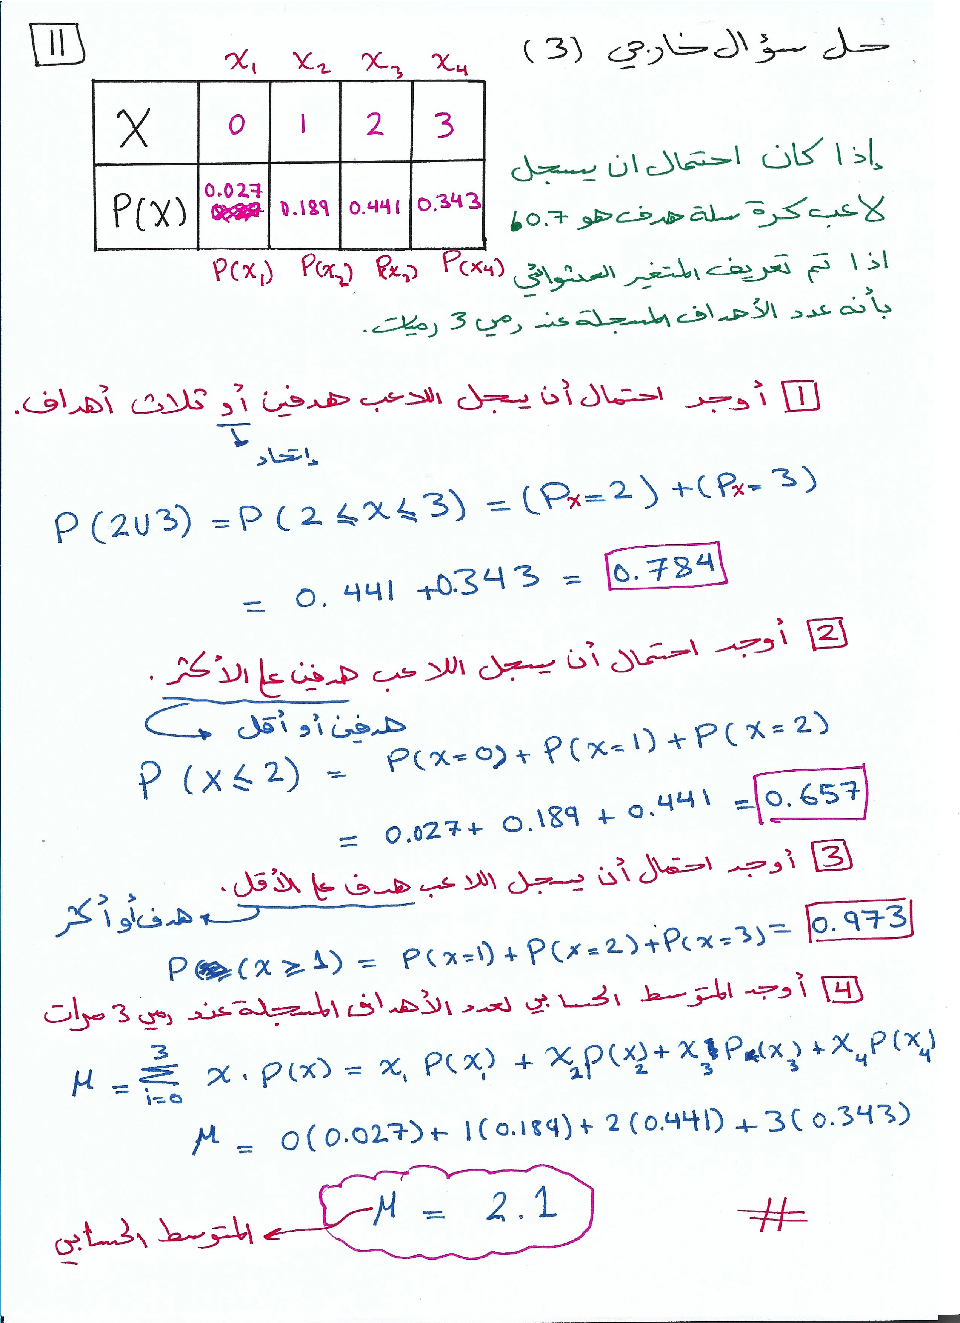 11
حل سؤال خارجي (3)
x₁ x₂ x₃ x₄
X 0 1 2 3
P(X) 0.027 0.189 0.441 0.343
P(x₁) P(x₂) P(x₃) P(x₄)
إذا كان احتمال ان يسجل
لاعب كرة سلة هدف هو 0.7،
اذا تم تعريف المتغير العشوائي
بأنه عدد الأهداف المسجلة عند رمي 3 رميات.
1 أوجد احتمال أن يسجل اللاعب هدفين أو ثلاث أهداف.
إتحاد
P(2∪3) = P(2≤x≤3) = (Px=2) + (Px=3)
= 0.441 + 0.343 = 0.784
2 أوجد احتمال أن يسجل اللاعب هدفين على الأكثر.
هدفين أو أقل
P(x≤2) = P(x=0) + P(x=1) + P(x=2)
= 0.027 + 0.189 + 0.441 = 0.657
3 أوجد احتمال أن يسجل اللاعب هدف على الأقل.
هدف أو أكثر
P(x≥1) = P(x=1) + P(x=2) + P(x=3) = 0.973
4 أوجد المتوسط الحسابي لعدد الأهداف المسجلة عند رمي 3 مرات
3
μ = Σ x . P(x) = x₁ P(x₁) + x₂ P(x₂) + x₃ P(x₃) + x₄ P(x₄)
i=0
μ = 0(0.027) + 1(0.189) + 2(0.441) + 3(0.343)
μ = 2.1
المتوسط الحسابي
#